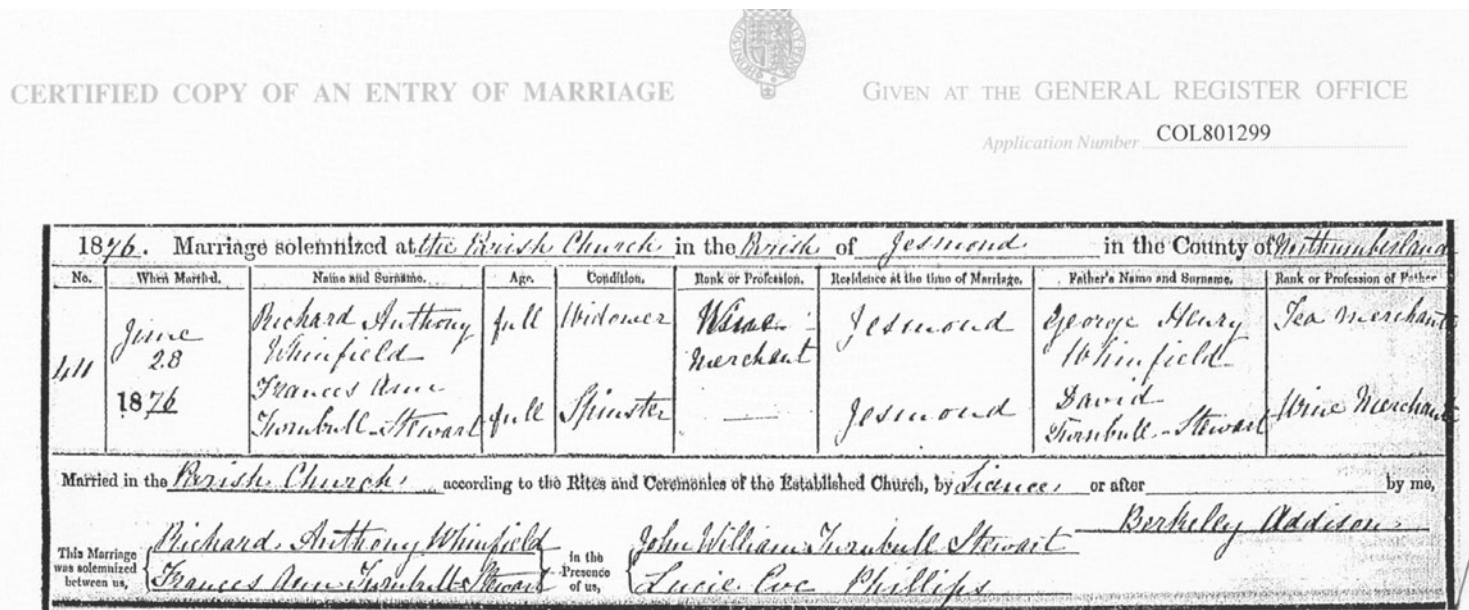 CERTIFIED COPY OF AN ENTRY OF MARRIAGE
GIVEN AT THE GENERAL REGISTER OFFICE
Application Number COL801299
1876. Marriage solemnized at the Parish Church in the Parish of Jesmond in the County of Northumberland
No. When Married. Name and Surname. Age. Condition. Rank or Profession. Residence at the time of Marriage. Father's Name and Surname. Rank or Profession of Father
June Richard Anthony full Widower Wine Jesmond George Henry Tea Merchant
28 Whinfield Merchant Whinfield
1876 Frances Ann David
Turnbull-Stewart full Spinster — Jesmond Turnbull-Stewart Wine Merchant
Married in the Parish Church according to the Rites and Ceremonies of the Established Church, by Licence, or after by me,
Berkeley Addison
This Marriage was solemnized between us,
Richard Anthony Whinfield
Frances Ann Turnbull Stewart
in the Presence of us,
John William Turnbull Stewart
Lucie Eve Phillips